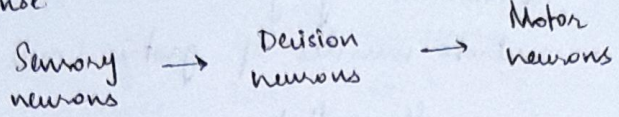 Sensory neurons → Decision neurons → Motor neurons